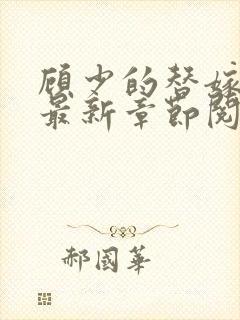 顾少的替嫁
最新章节阅
郝國華